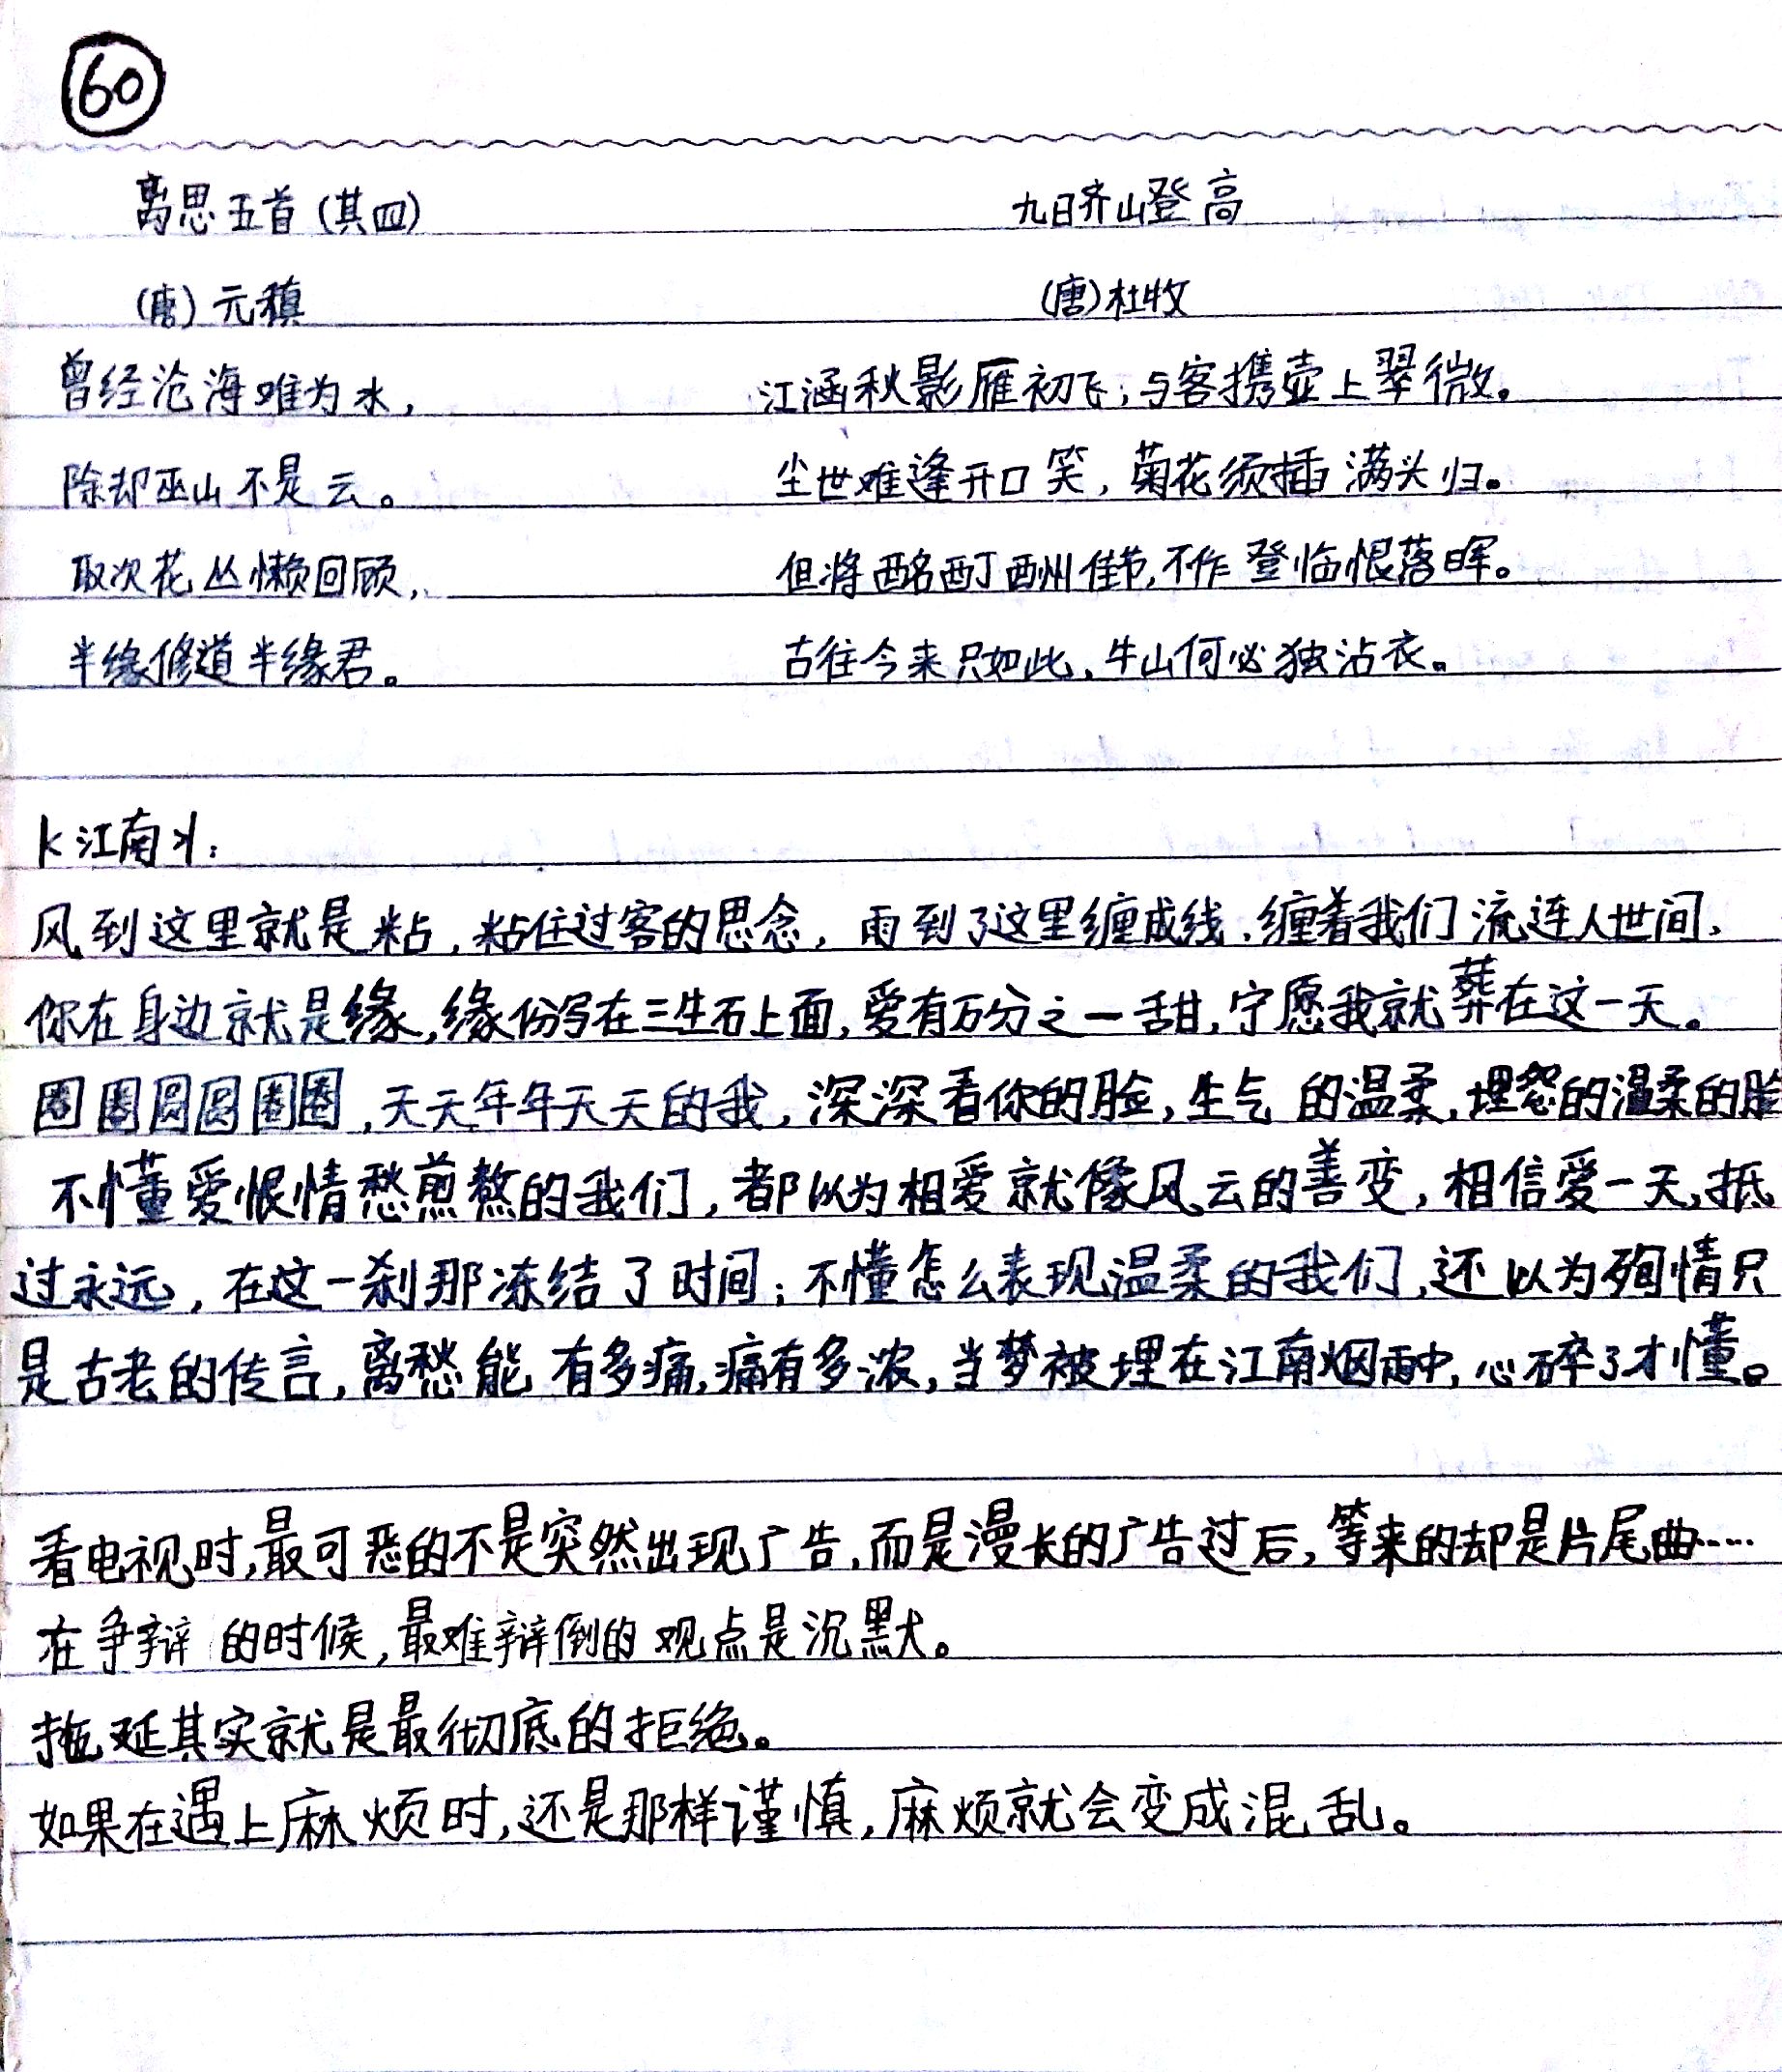 60
离思五首(其四)
(唐)元稹
曾经沧海难为水,
除却巫山不是云。
取次花丛懒回顾,
半缘修道半缘君。
九日齐山登高
(唐)杜牧
江涵秋影雁初飞,与客携壶上翠微。
尘世难逢开口笑,菊花须插满头归。
但将酩酊酬佳节,不作登临恨落晖。
古往今来只如此,牛山何必独沾衣。
江南:
风到这里就是粘,粘住过客的思念,雨到了这里缠成线,缠着我们流连人世间,
你在身边就是缘,缘份写在三生石上面,爱有万分之一甜,宁愿我就葬在这一天。
圈圈圆圆圈圈,天天年年天天的我,深深看你的脸,生气的温柔,埋怨的温柔的脸
不懂爱恨情愁煎熬的我们,都以为相爱就像风云的善变,相信爱一天,抵
过永远,在这一刹那冻结了时间;不懂怎么表现温柔的我们,还以为殉情只
是古老的传言,离愁能有多痛,痛有多浓,当梦被埋在江南烟雨中,心碎了才懂。
看电视时,最可恶的不是突然出现广告,而是漫长的广告过后,等来的却是片尾曲……
在争辩的时候,最难辩倒的观点是沉默。
拖延其实就是最彻底的拒绝。
如果在遇上麻烦时,还是那样谨慎,麻烦就会变成混乱。